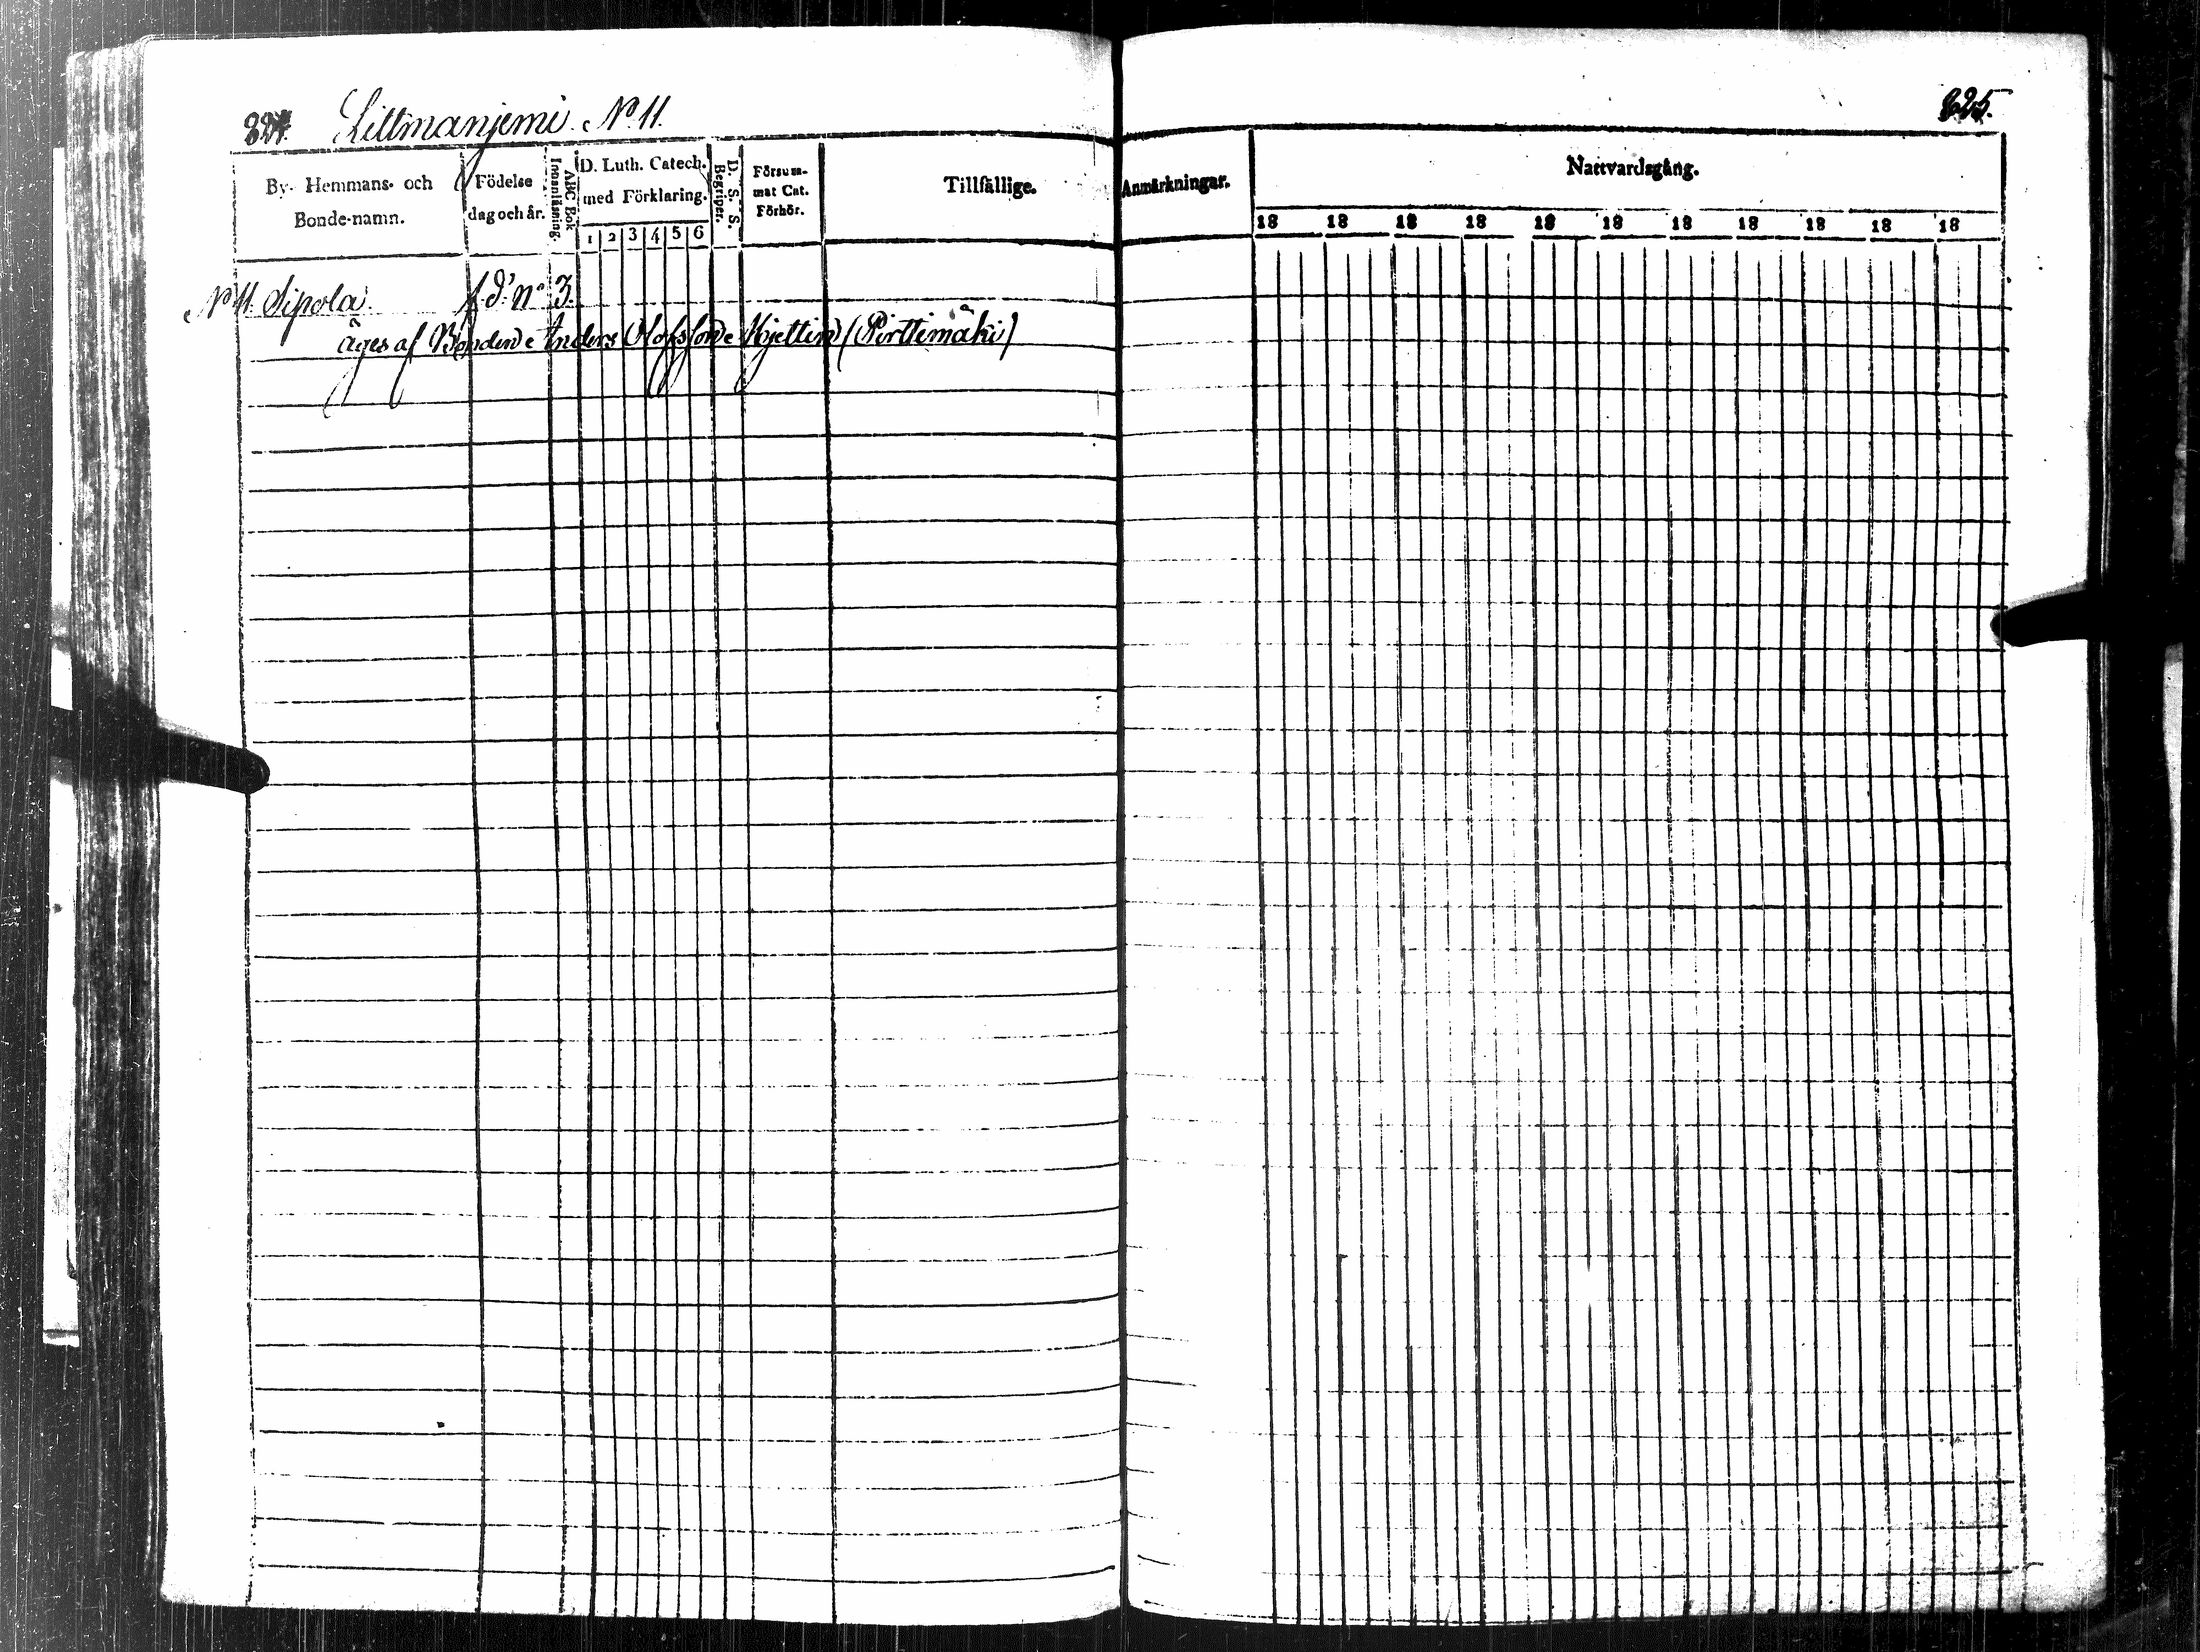 224. Littmanjemi. N° 11.
By- Hemmans- och Bonde-namn.
Födelse dag och år.
ABC Bok Innanläsning.
D. Luth. Catech. med Förklaring.
1 2 3 4 5 6
D. S. S. Begriper.
Försummat Cat. Förhör.
Tillfällige.
N° 11. Sipola. f. d. n° 3.
äges af Bonden Anders Olofsson Kjettin (Pirttimäki)
225.
Anmärkningar.
Nattvardsgång.
18 18 18 18 18 18 18 18 18 18 18